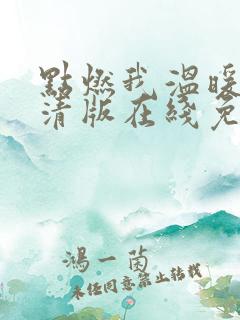 點燃我 溫暖
清版在綫免
鴻一茵
未經同意禁止轉載